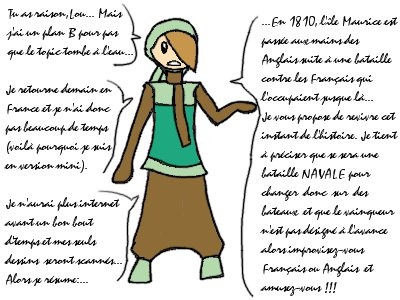 Tu as raison, Lou... Mais
j'ai un plan B pour pas
que le topic tombe à l'eau...
Je retourne demain en
France et je n'ai donc
pas beaucoup de temps
(voilà pourquoi je suis
en version mini).
Je n'aurai plus internet
avant un bon bout
d'temps et mes seuls
dessins seront scannés...
Alors je résume:...
...En 1810, l'île Maurice est
passée aux mains des
Anglais suite à une bataille
contre les Français qui
l'occupaient jusque là...
Je vous propose de revivre cet
instant de l'histoire. Je tient
à préciser que se sera une
bataille NAVALE pour
changer donc sur des
bateaux et que le vainqueur
n'est pas désigné à l'avance
alors improvisez-vous
Français ou Anglais et
amusez-vous !!!